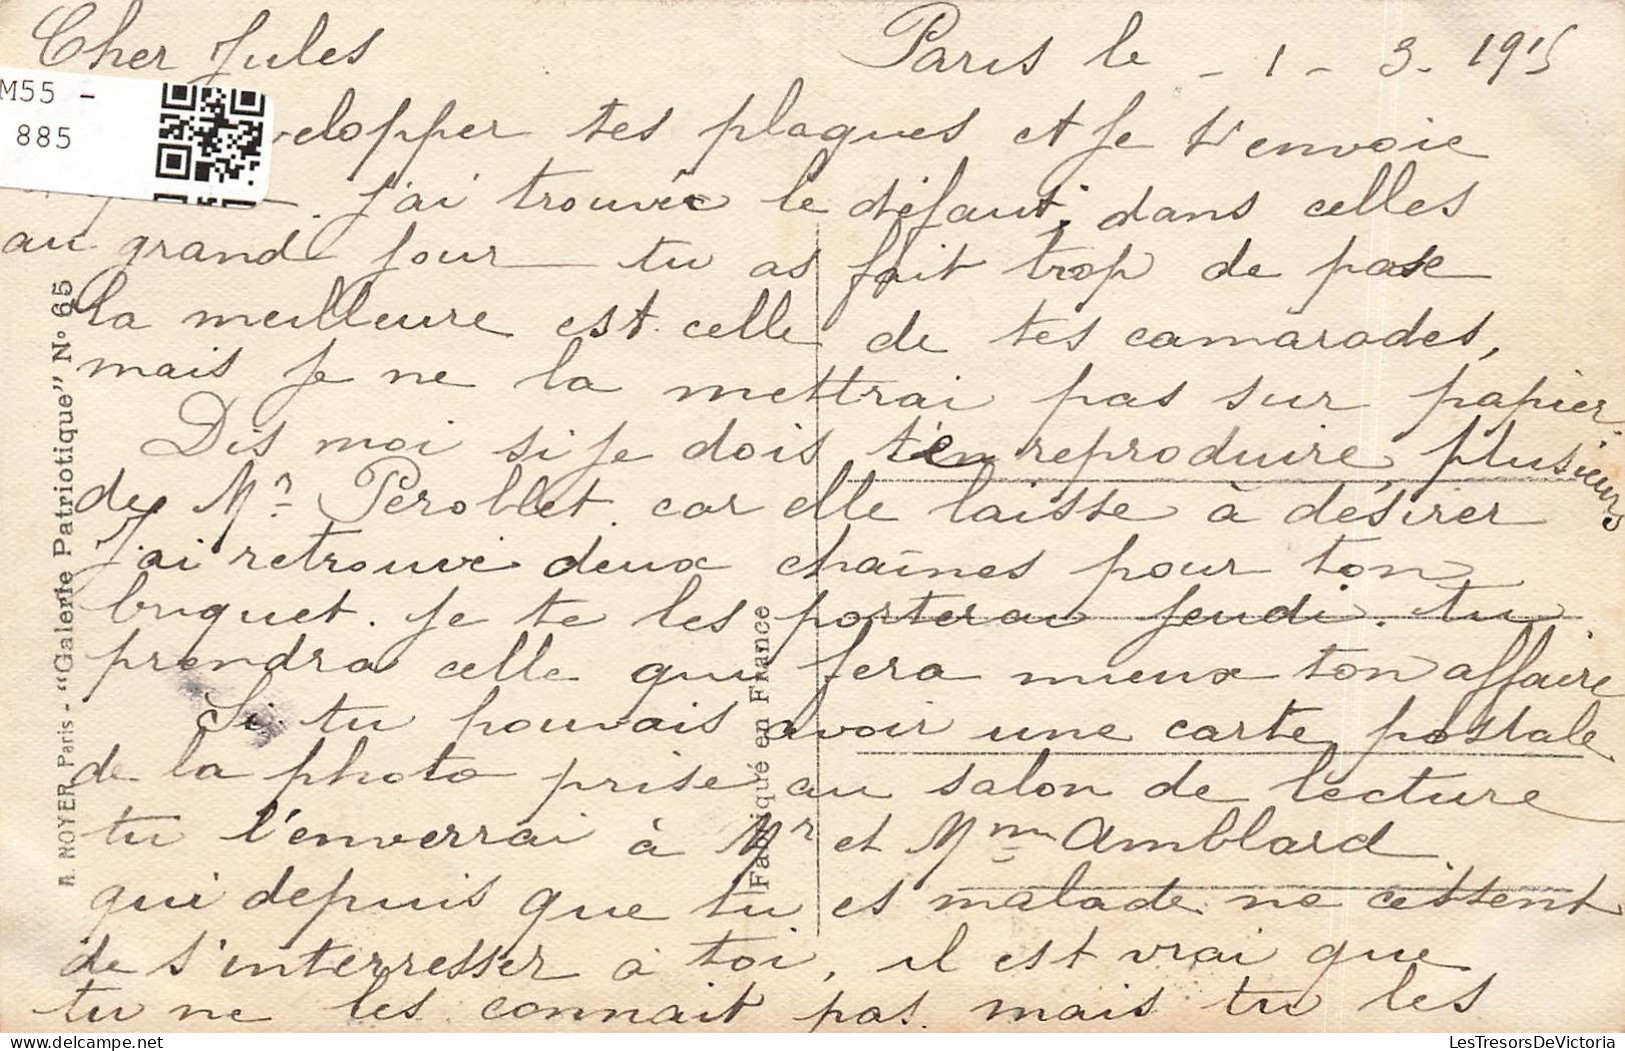 Cher Jules
Paris le - 1 - 3. 1915
M55 -
885
velopper tes plaques et je t'envoie
j'ai trouvée le défaut, dans celles
au grand jour tu as fait trop de pose
la meilleure est celle de tes camarades,
mais je ne la mettrai pas sur papier
Dis moi si je dois t'en reproduire plusieurs
de Mr Peroblet car elle laisse à désirer
J'ai retrouvé deux chaînes pour ton
briquet. je te les porterai jeudi. tu
prendra celle qui fera mieux ton affaire
Si tu pouvais avoir une carte postale
de la photo prise au salon de lecture
tu l'enverrai à Mr et Mme Amblard
qui depuis que tu es malade ne cessent
de s'interresser a toi, il est vrai que
tu ne les connait pas mais tu les
A. NOYER Paris - "Galerie Patriotique" N° 65
Fabriqué en France
LesTresorsDeVictoria